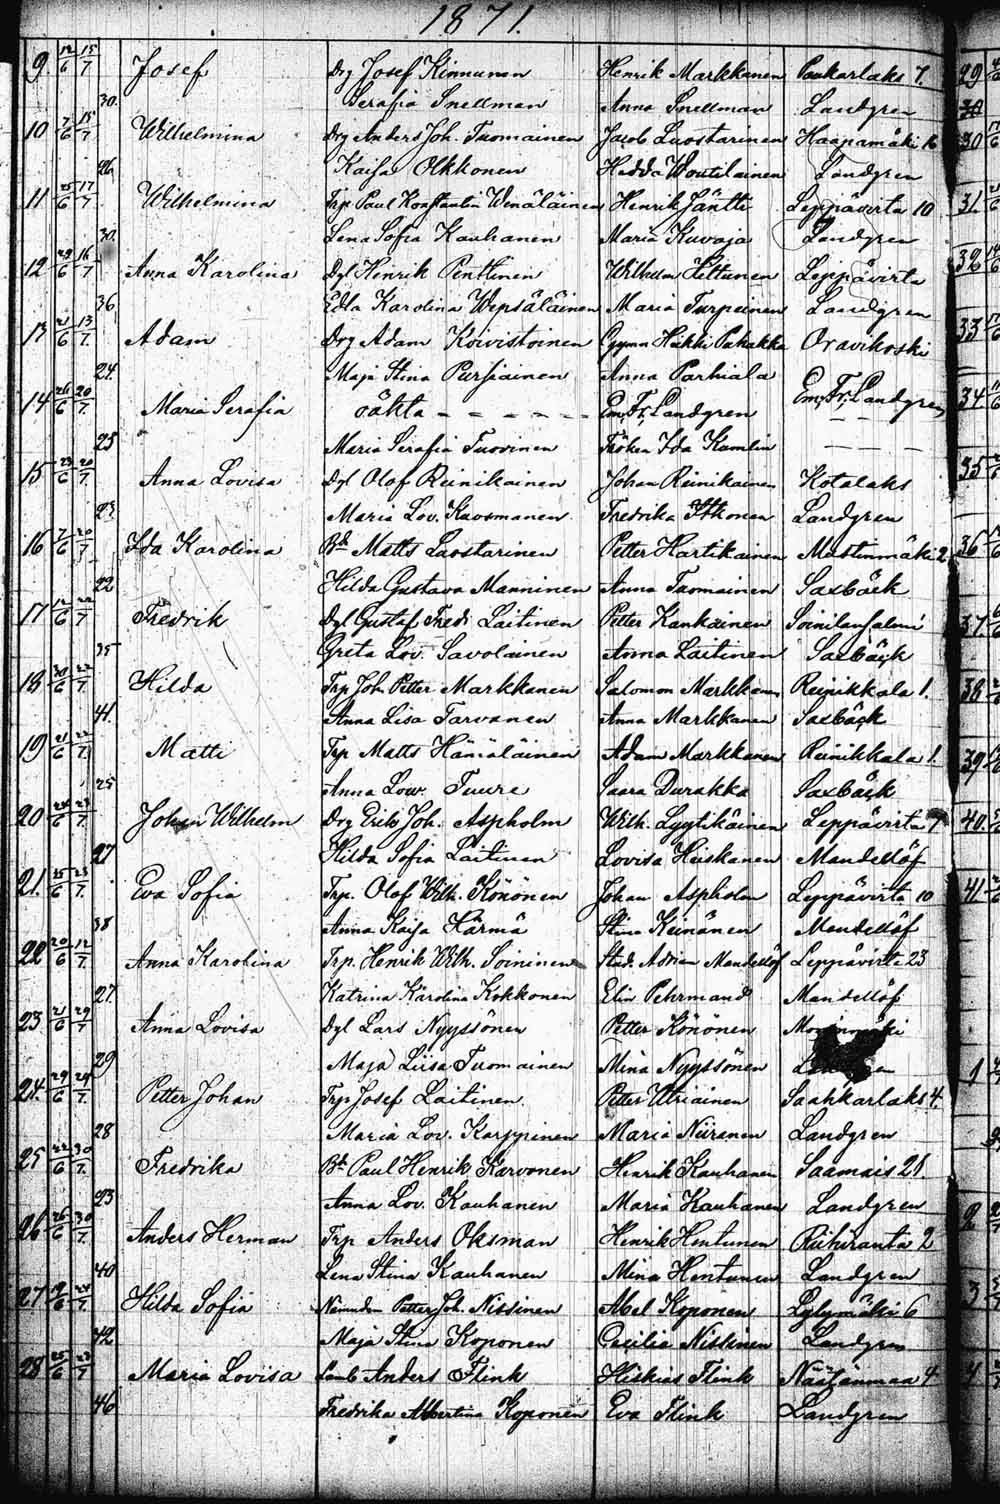 1871.
9. 12/6 15/7 Josef Drg Josef Kinnunen Henrik Markkanen Paukarlaks 7. 29
30. Serafia Snellman Anna Snellman Landgren 30
10 7/6 15/7 Wilhelmina Drg Anders Joh. Tuomainen Jacob Luostarinen Haapamäki 16 30
26. Kaisa Olkkonen Hedda Woutilainen Landgren
11 25/6 17/7 Wilhelmina Trp Paul Konstantin Wenäläinen Henrik Jäntti Leppävirta 10 31.
30. Lena Sofia Kauhanen Maria Kuvaja Landgren
12 29/6 16/7 Anna Karolina Dgl Henrik Penttinen Wilhelm Hiltunen Leppävirta 32
36 Edla Karolina Wepsäläinen Maria Turpeinen Landgren
13 2/6 13/7 Adam Drg Adam Koivistoinen Heikki Pakakka Oravikoski 33
24. Maja Stina Pursiainen Anna Partiala
14 26/6 20/7 Maria Serafia oäkta Em. Fr. Landgren Em. Fr. Landgren 34
25 Maria Serafia Tuovinen Fröken Ida Kamlin
15 23/6 20/7 Anna Lovisa Dgl Olof Reinikainen Johan Reinikainen Kotalaks 35
23. Maria Lov. Kuosmanen Fredrika Itkonen Landgren
16 7/6 20/7 Ida Karolina Bd Matts Luostarinen Petter Hartikainen Mustinmäki 2 36
22 Hilda Gustava Manninen Anna Tuomainen Saxbäck
17 12/6 22/7 Fredrik Dgl Gustaf Fredr. Laitinen Petter Kankainen Soinilansalmi 37
35 Greta Lov. Savolainen Anna Laitinen Saxbäck
18 30/6 22/7 Hilda Trp Joh. Petter Markkanen Salomon Markkanen Reinikkala 1. 38
41. Anna Lisa Tarvanen Anna Markkanen Saxbäck
19 21/6 22/7 Matti Trp Matts Hämäläinen Adam Markkanen Reinikkala 1. 39
25 Anna Low. Tuure Saara Durakka Saxbäck
20 24/6 23/7 Johan Wilhelm Drg Erik Joh. Aspholm Wilh. Lyytikäinen Leppävirta 7 40.
27 Hilda Sofia Laitinen Lovisa Heiskanen Mandellöf
21. 25/6 23/7 Eva Sofia Trp. Olof Wilh. Könönen Johan Aspholm Leppävirta 10 41.
38 Anna Kaisa Härmä Stina Keinänen Mandellöf
22 20/6 12/7 Anna Karolina Trp. Henrik Wilh. Soininen Stud. Adrian Mandellöf Leppävirta 23
27. Katrina Karolina Kokkonen Elin Pehrmand Mandellöf
23. 2/6 29/7 Anna Lovisa Dgl Lars Nyyssönen Petter Könönen
29 Maja Liisa Tuomainen Mina Nyyssönen 1
24. 29/6 24/7 Petter Johan Trp Josef Laitinen. Petter Utriainen Saahkarlaks 4.
28 Maria Lov. Karppinen Maria Niiranen Landgren
25 22/6 30/7 Fredrika Bd Paul Henrik Karvonen Henrik Kauhanen Saamais 21.
23 Anna Lov. Kauhanen Maria Kauhanen Landgren
26 26/6 30/7 Anders Herman Trp Anders Oksman Henrik Hentunen Riituranta 2 2
40 Lena Stina Kauhanen Mina Hentunen Landgren
27 9/6 24/7 Hilda Sofia Petter Joh. Nissinen Abel Koponen Lylymäki 6 3
42 Maja Stina Koponen Cecilia Niskanen Landgren
28 25/6 23/7 Maria Lovisa Anders Flink Hiskias Flink Näätänmaa 4 4
46 Fredrika Albertina Koponen Eva Flink Landgren